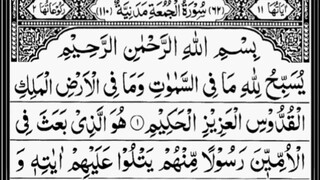 اٰیَاتُهَا ۱۱ (۶۲) سُوْرَةُ الْجُمُعَةِ مَدَنِيَّةٌ (۱۱۰) رُكُوْعَاتُهَا ۲
بِسْمِ اللهِ الرَّحْمٰنِ الرَّحِيْمِ
يُسَبِّحُ لِلّٰهِ مَا فِى السَّمٰوٰتِ وَمَا فِى الْاَرْضِ الْمَلِكِ
الْقُدُّوْسِ الْعَزِيْزِ الْحَكِيْمِ ۝۱ هُوَ الَّذِىْ بَعَثَ فِى
الْاُمِّيّٖنَ رَسُوْلًا مِّنْهُمْ يَتْلُوْا عَلَيْهِمْ اٰيٰتِهٖ وَ